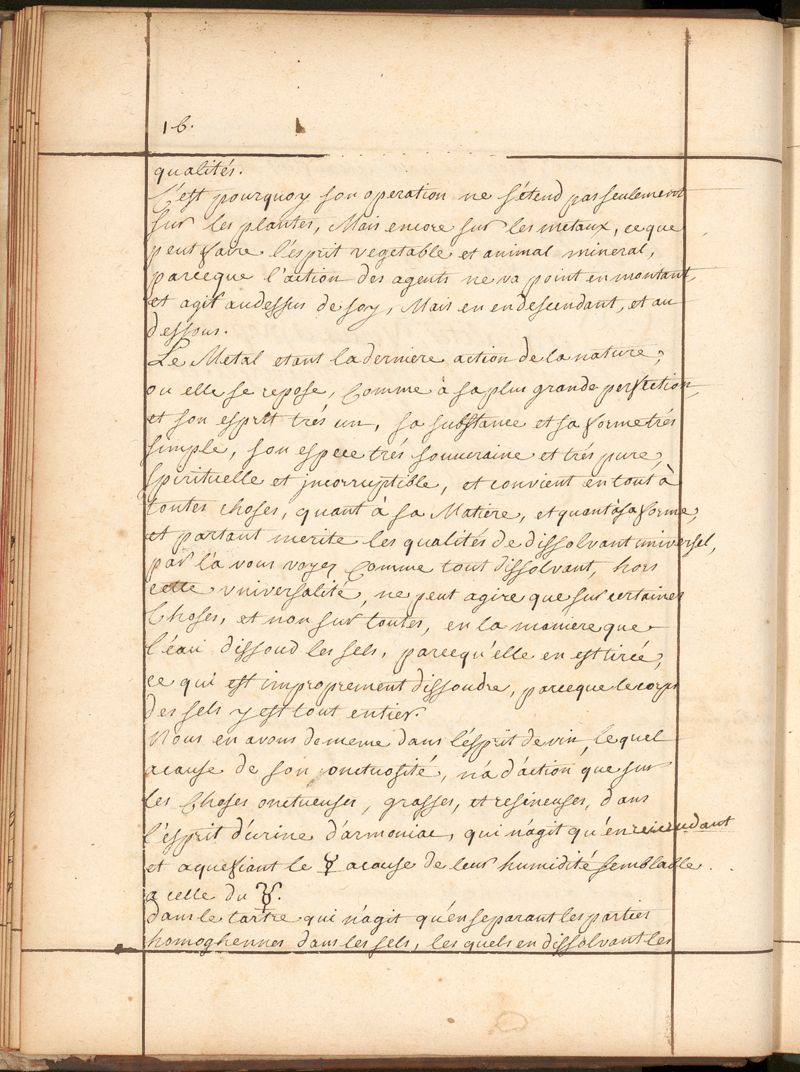 16.
qualités.
C'est pourquoy son operation ne s'étend pas seulement
sur les plantes, Mais encore sur les metaux, ce que
peut faire l'ésprit vegetable et animal mineral,
parceque l'action des agents ne va point en montant,
et agit audessus de soy, Mais en endescendant, et au
dessous.
Le Metal etant la derniere action de la nature,
ou elle se repose, Comme à sa plus grande perfection,
et son esprit trés un, sa substance et sa forme trés
simple, son espece trés souueraine et trés pure,
spirituelle et jncorruptible, et convient en tout à
toutes choses, quant à sa Matiere, et quant à sa forme,
et partant merite les qualités de dissolvant universel,
par là vous voyez Comme tout dissolvant, hors
cette vniversalité, ne peut agire que sur certaines
Choses, et non sur toutes, en la maniere que
l'éau dissoud les sels, parcequ'elle en est tirée,
ce qui est improprement dissoudre, parceque le corps
des sels y est tout entier.
Nous en avons de meme dans l'ésprit de vin, le quel
acause de son onctuosité, n'a d'action que sur
les Choses onctueuses, grasses, et resineuses, dans
l'ésprit d'urine d'armoniac, qui n'agit qu'en
et aquefiant le ☿ acause de leur humidité semblable
a celle du ☿.
dans le tartre qui n'agit qu'en separant les parties
homoghennes dans les sels, les quels en dissolvant les